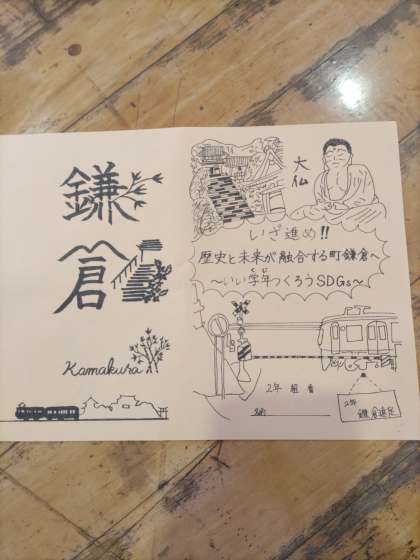 鎌
倉
Kamakura
大仏
いざ進め!!
歴史と未来が融合する町鎌倉へ
～いい学年つくろうSDGs～
2年 組 番
2年
鎌倉遠足